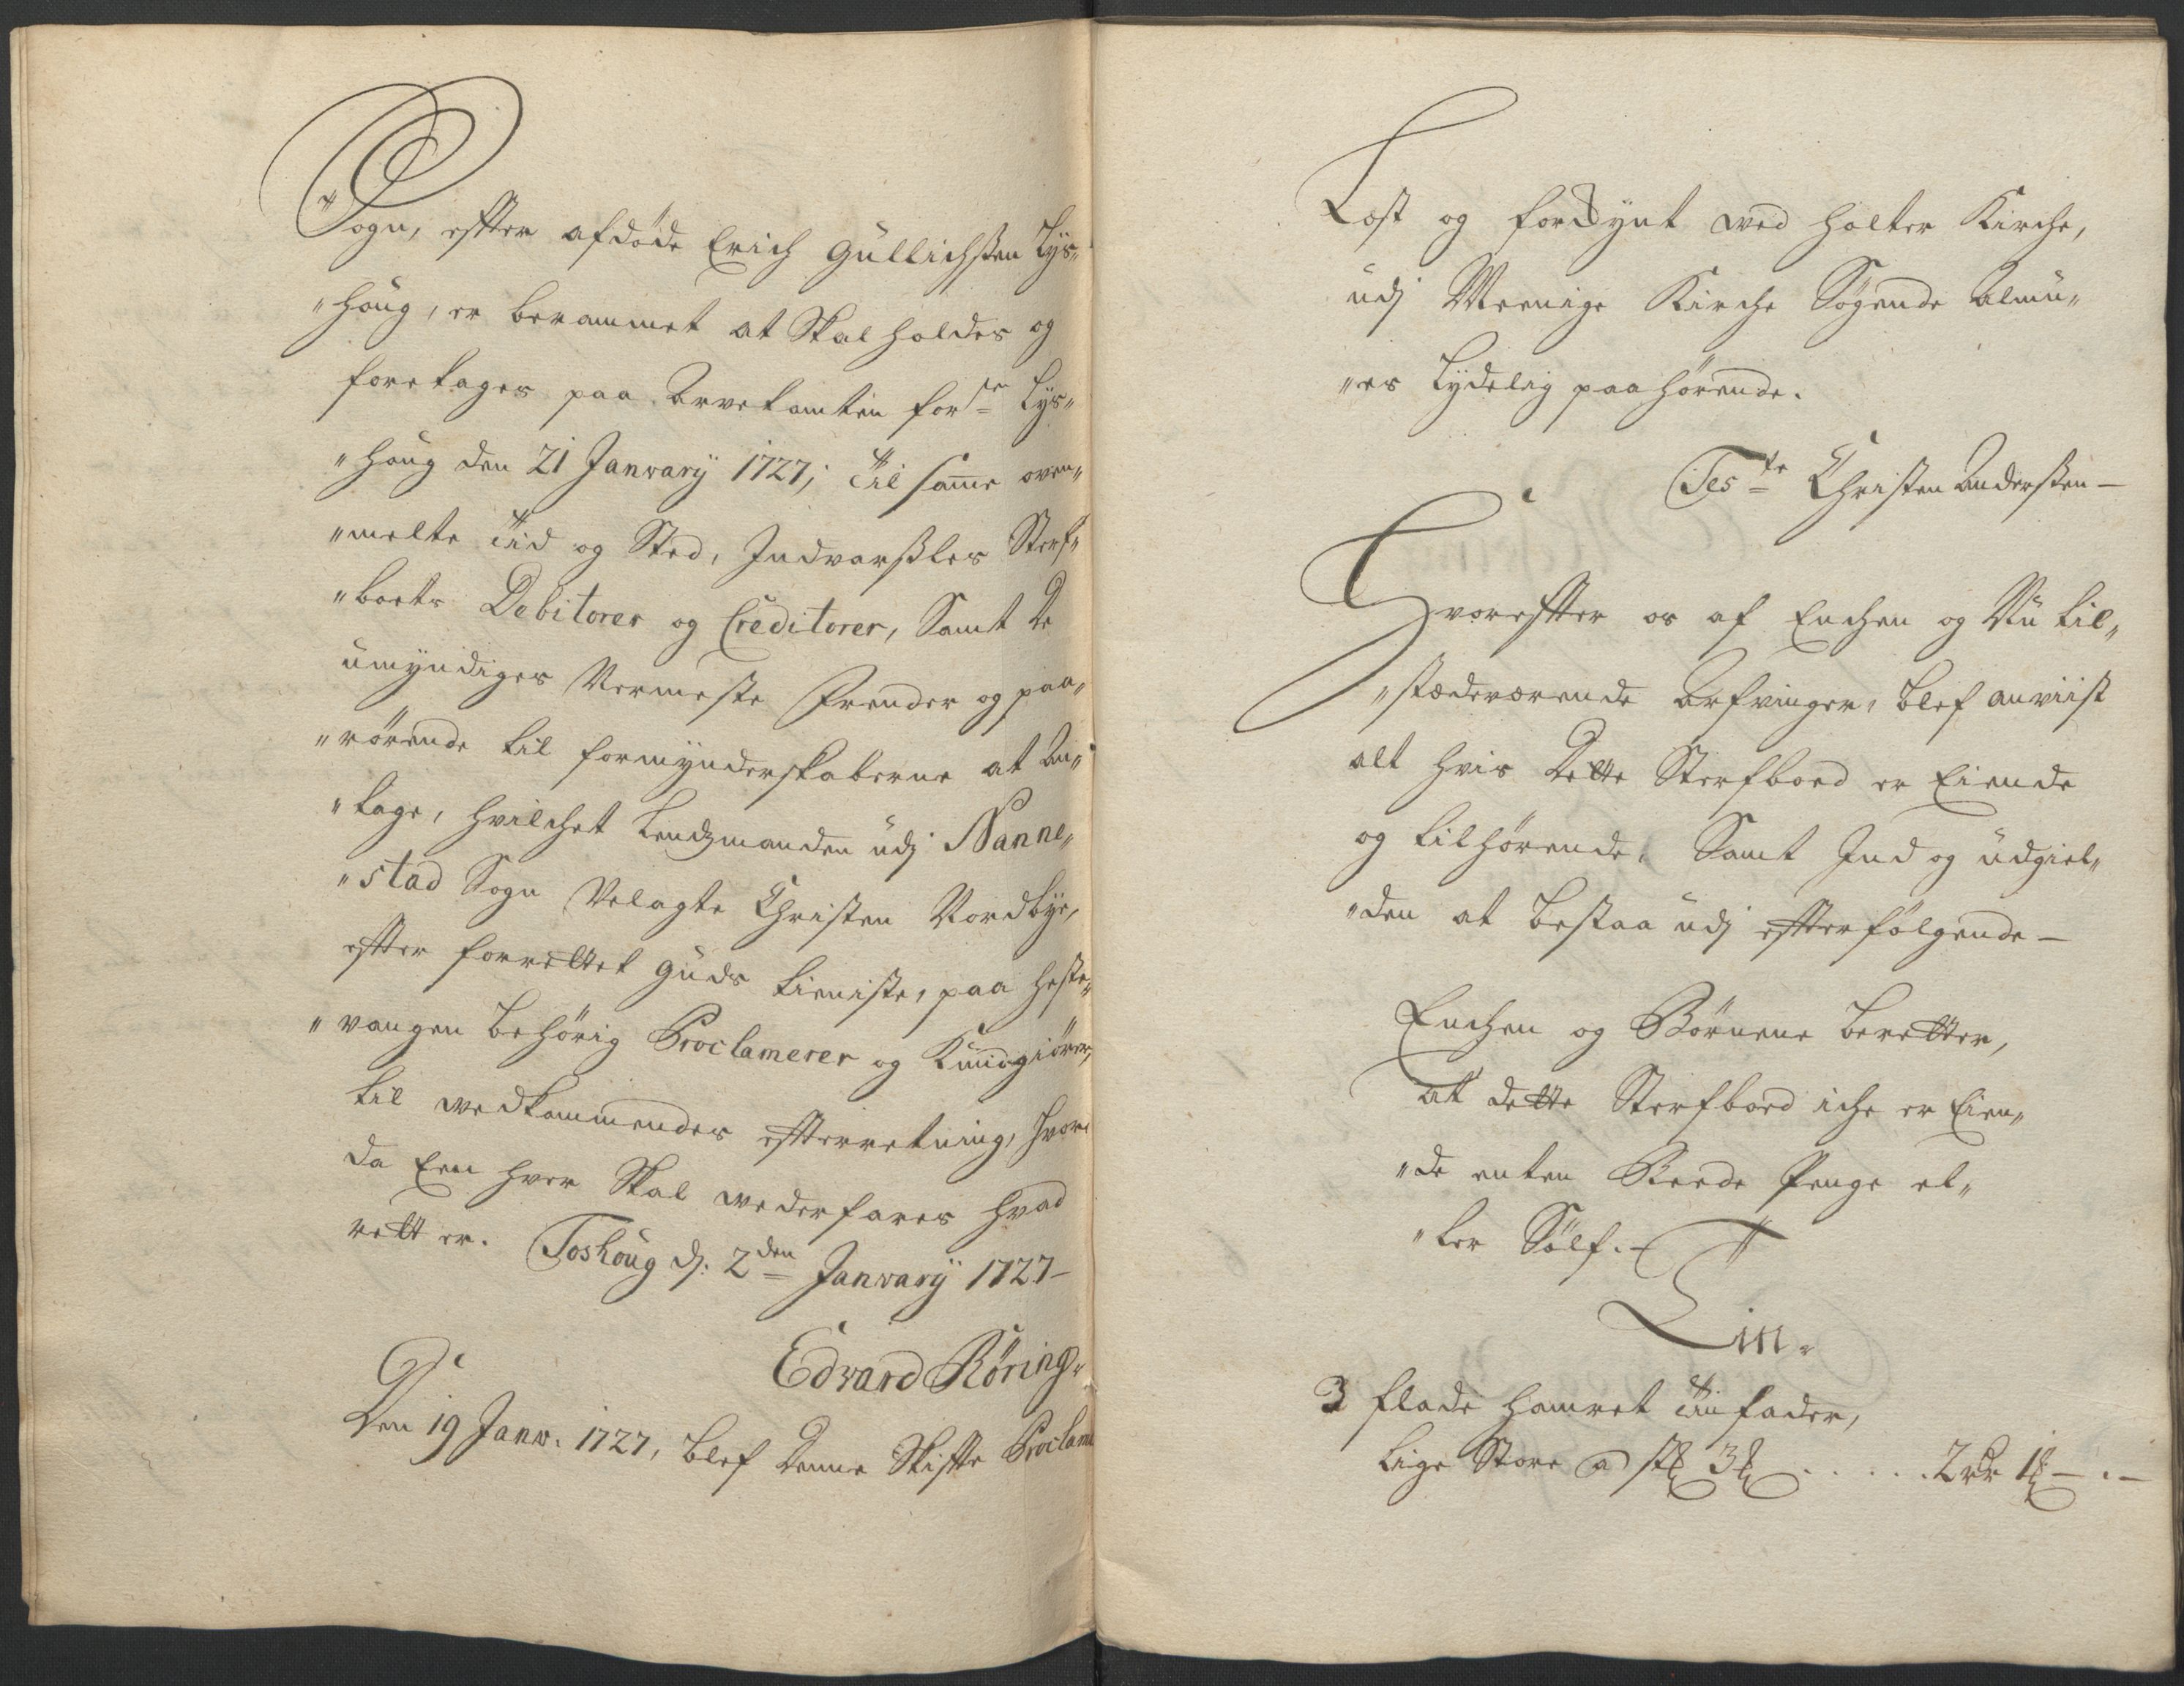 Sogn, efter afdøde Erich Gullichssen Lys„
„houg, er berammet at Skal holdes og
foretages paa Arvetomten for:ne Lys„
„houg den 21 Janvarÿ 1727; Til samme oven„
„melte Tid og Sted, Indvarsles Sterf„
„boets Debitorer og Creditorer, Samt de
umÿndiges Nermeste Frender og paa„
„rørende til formÿnderskaberne at An„
„tage, hvilchet Lendsmanden udj Nanne„
„stad Sogn Velagte Christen Nordbÿe,
efter forrettet Guds tieniste, paa Heste„
„vangen behørig Proclamerer og Kundgiører,
til wedkommendes efterretning, hvor
da Een hver Skal wederfares hvad
rett er. Toshoug d: 2den Janvarÿ 1727–
Edvard Röring„
Den 19 Janv. 1727, blef denne Skifte Proclame
Læst og forkÿnt wed Holter Kirche,
udj Meenige Kirche Søgende Almu„
„es Lÿdelig paahørende.
Teste Christen Anderssen –
Hvorefter os af Enchen og Nu til„
„stædeværende Arfvinger, blef anviist
alt hvis dette Sterfboed er Eiende
og tilhørende, Samt Ind og udgiel„
„den at bestaa udj efterfølgende –
Enchen og Børnene beretter,
at dette Sterfboed iche er Eien„
„de enten Reede Penge el„
„ler Sølf. –
Tin.
3 flade hamret Tin fader,
lige Store a st 3 ℔ . . . . . . 2 rdr 1 ℔ – . –